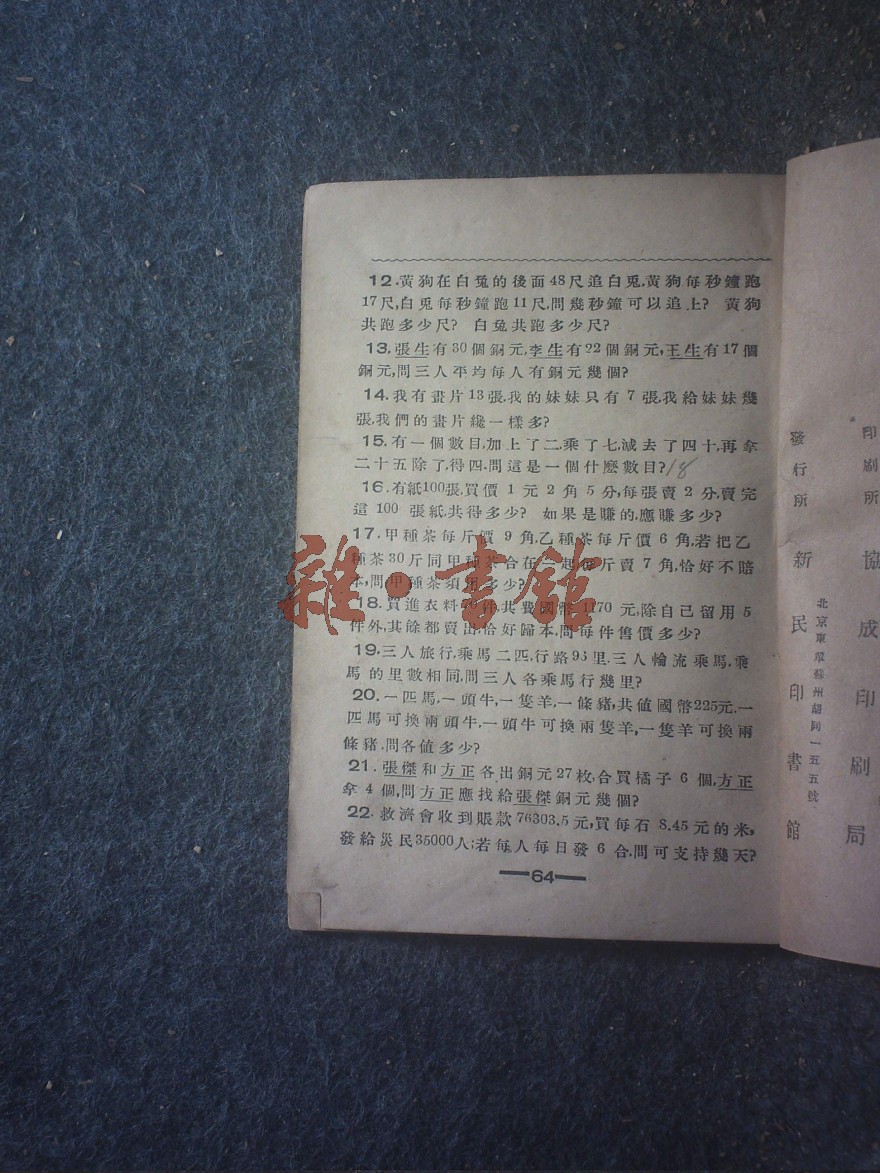 12.黃狗在白兔的後面48尺追白兎,黃狗每秒鐘跑
17尺,白兎每秒鐘跑11尺,問幾秒鐘可以追上? 黃狗
共跑多少尺? 白兔共跑多少尺?
13.張生有30個銅元,李生有22個銅元,王生有17個
銅元,問三人平均每人有銅元幾個?
14.我有畫片13張,我的妹妹只有7張,我給妹妹幾
張,我們的畫片纔一樣多?
15.有一個數目,加上了二,乘了七,減去了四十,再拿
二十五除了,得四.問這是一個什麽數目?18
16.有紙100張,買價1元2角5分,每張賣2分,賣完
這100張紙,共得多少? 如果是賺的,應賺多少?
17.甲種茶每斤價9角,乙種茶每斤價6角,若把乙
種茶30斤同甲種茶合在一起,每斤賣7角,恰好不賠
本,問甲種茶須用多少?
18.買進衣料 件,共費國幣1170元,除自己留用5
件外,其餘都賣出,恰好歸本,問每件售價多少?
19.三人旅行,乘馬二匹,行路96里.三人輪流乘馬,乘
馬的里數相同,問三人各乘馬行幾里?
20.一匹馬,一頭牛,一隻羊,一條豬,共値國幣225元.一
匹馬可換兩頭牛,一頭牛可換兩隻羊,一隻羊可換兩
條豬.問各値多少?
21.張傑和方正各出銅元27枚,合買橘子6個,方正
拿4個,問方正應找給張傑銅元幾個?
22.救濟會收到賬款76303.5元,買每石8.45元的米,
發給災民35000人;若每人每日發6合,問可支持幾天?
64
雜·書館
發行所 新民印書館
北京東單蘇州胡同一五五號
印刷所 協成印刷局